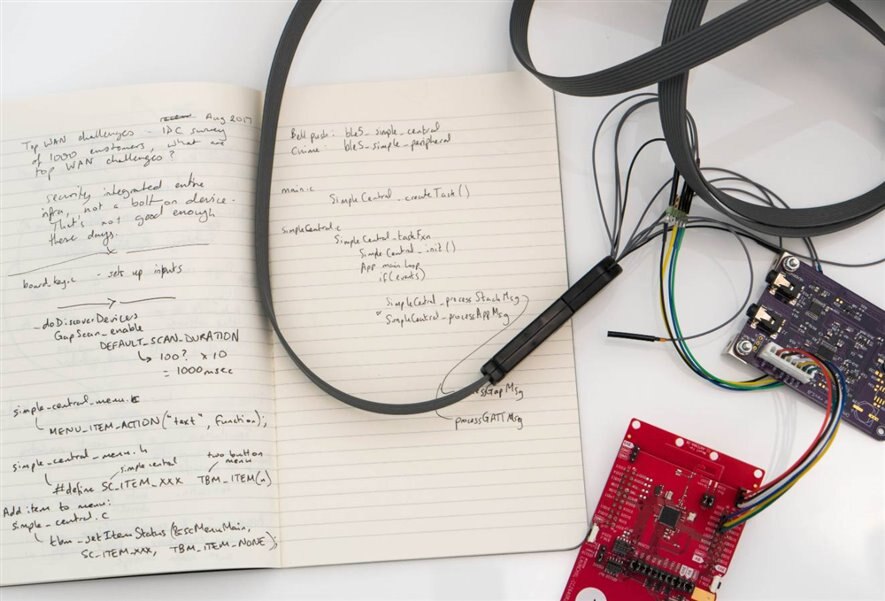 Aug 2017
Top WAN challenges - IDC survey
of 1000 customers, what are
top WAN challenges?
security integrated entire
infra, not a bolt on device.
That's not good enough
these days.
board_key.c - set up inputs
_doDiscoverDevices
GapScan_enable
DEFAULT_SCAN_DURATION
↳ 100? x 10
= 1000 msec
simple_central_menu.c
↳ MENU_ITEM_ACTION("text", function);
simple_central_menu.h
simple central two button menu
↳ #define SC_ITEM_XXX TBM_ITEM(n)
Add item to menu:
simple_central.c
↳ tbm_setItemStatus(&scMenuMain,
SC_ITEM_XXX, TBM_ITEM_NONE);
Bell push: ble5_simple_central
Chime: ble5_simple_peripheral
main.c
SimpleCentral_createTask()
simpleCentral.c
SimpleCentral_taskFxn
SimpleCentral_init()
App main loop
if(events)
SimpleCentral_processStackMsg
SimpleCentral_processAppMsg
processGapMsg
processGATTMsg